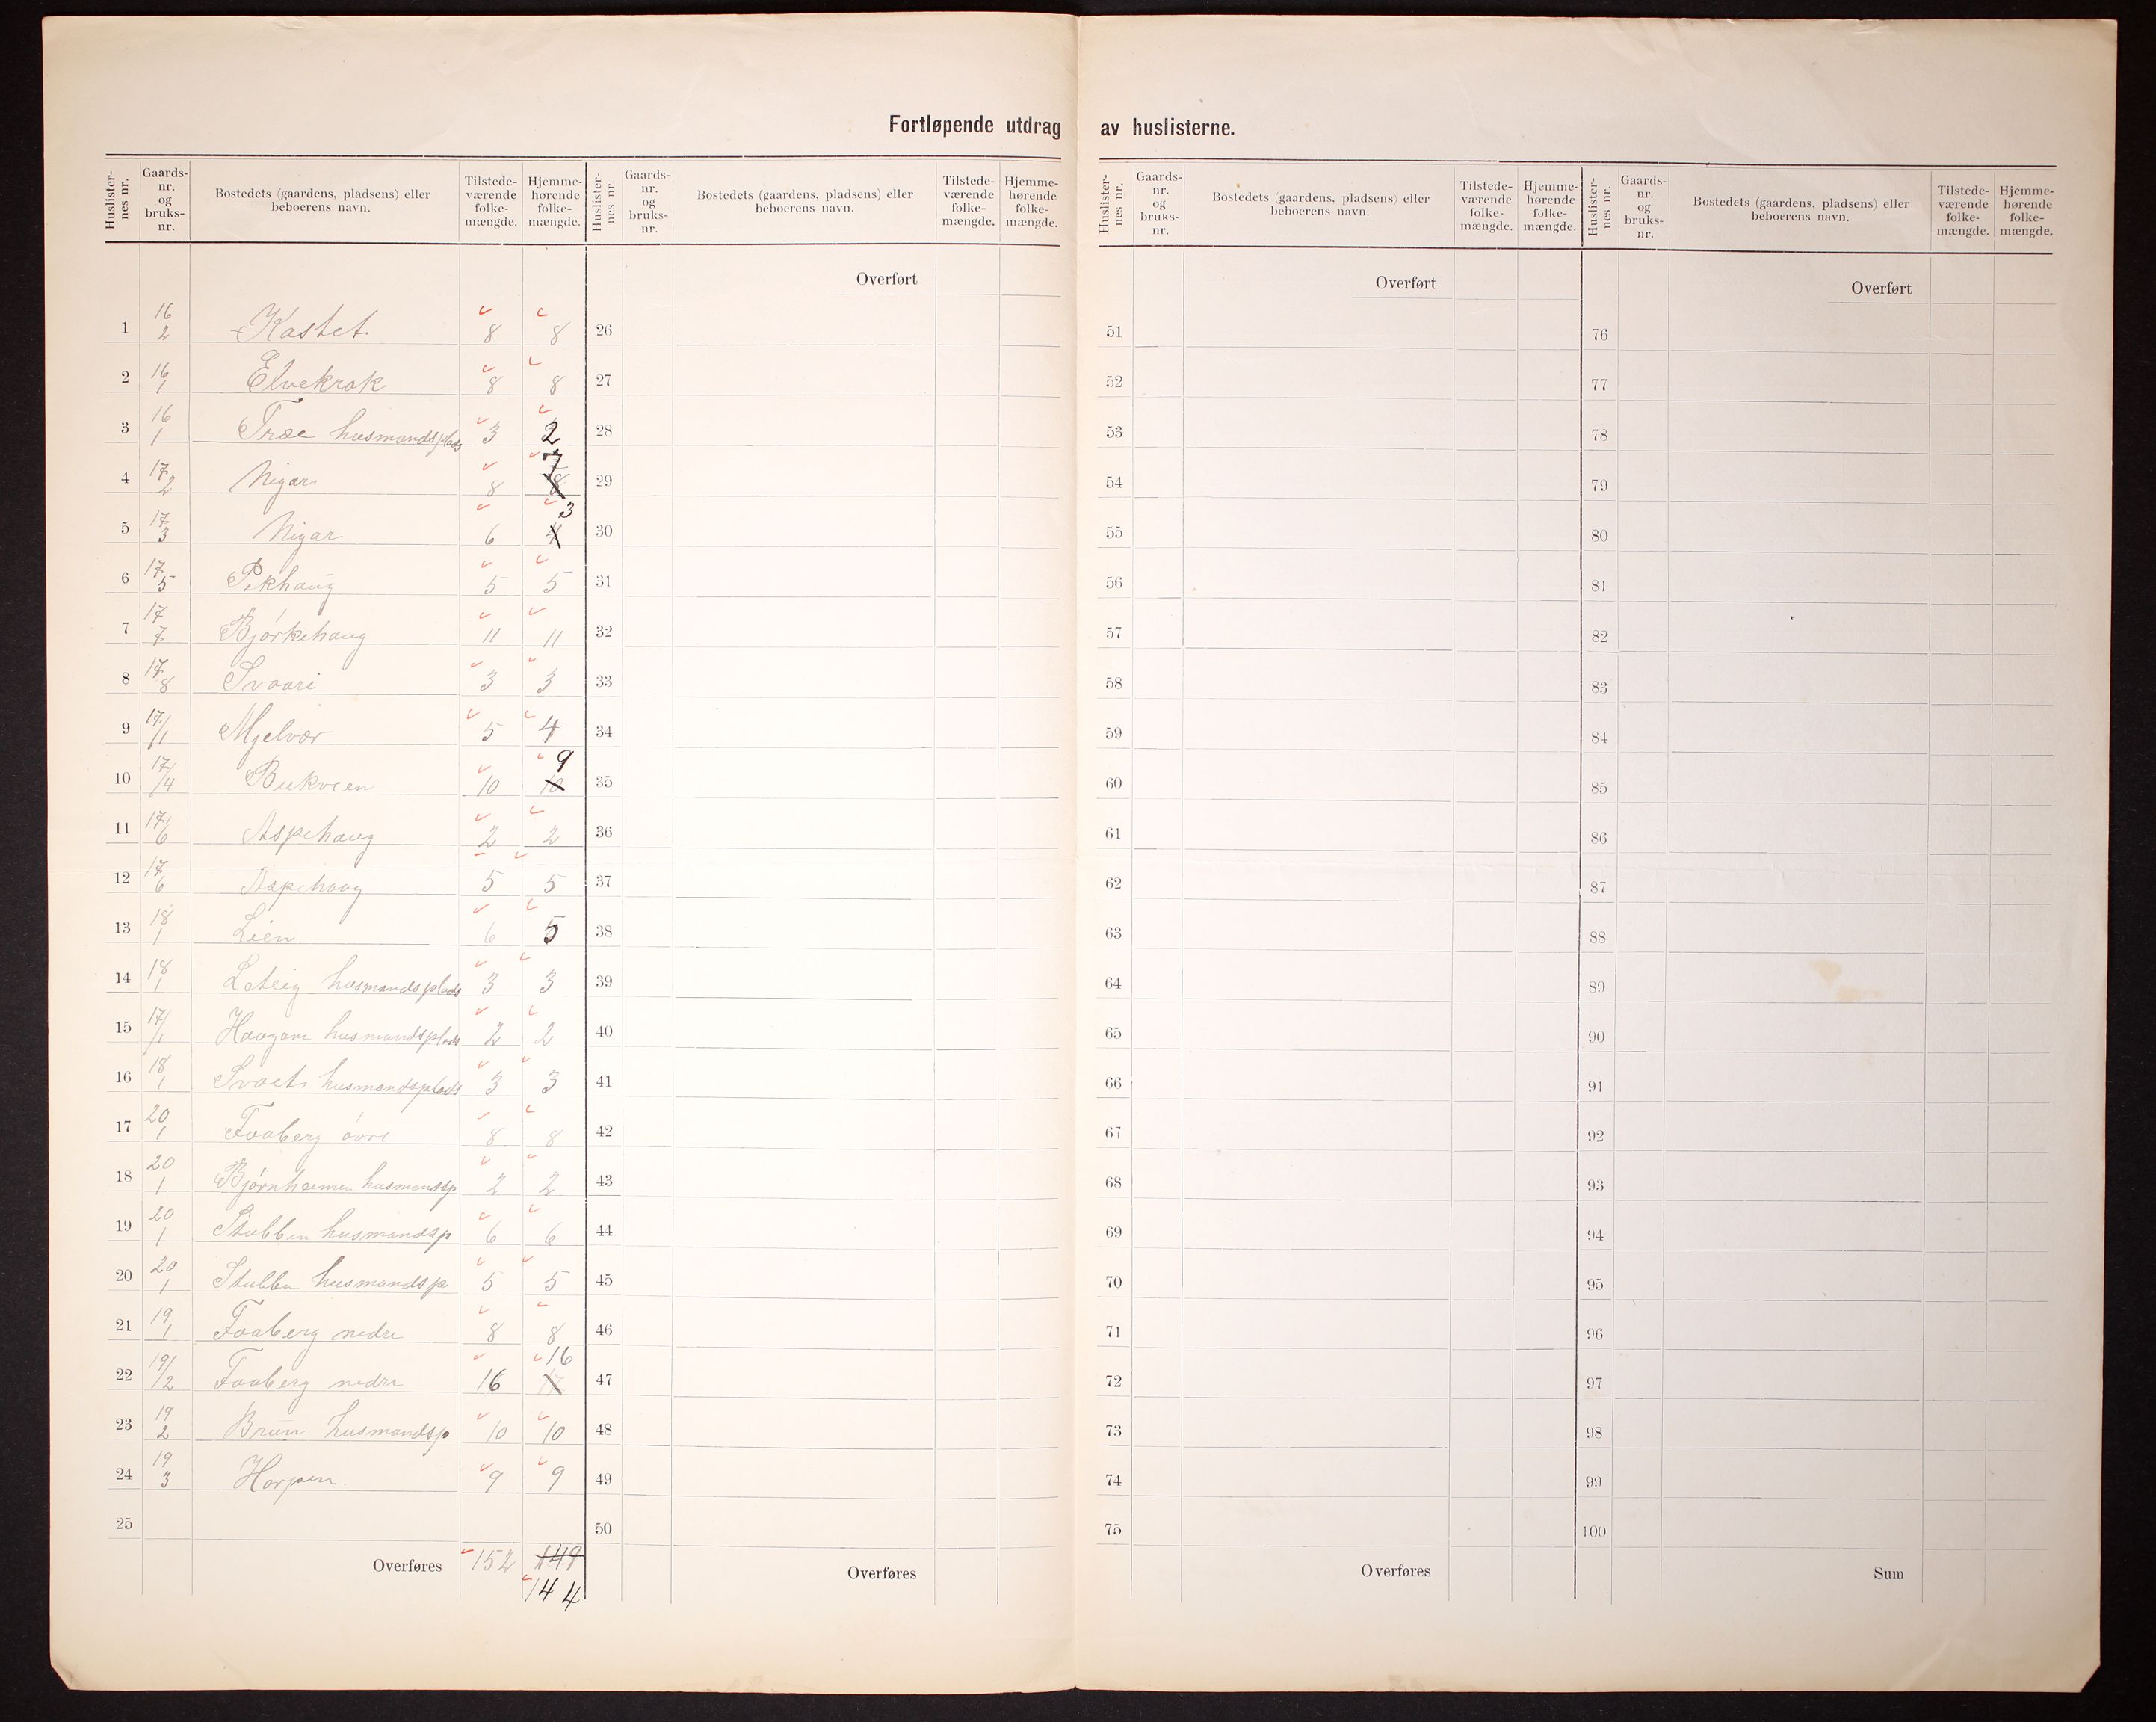 Fortløpende utdrag av huslisterne.
Huslister-nes nr. Gaards-nr. og bruks-nr. Bostedets (gaardens, pladsens) eller beboerens navn. Tilstede-værende folke-mængde. Hjemme-hørende folke-mængde. Huslister-nes nr. Gaards-nr. og bruks-nr. Bostedets (gaardens, pladsens) eller beboerens navn. Tilstede-værende folke-mængde. Hjemme-hørende folke-mængde. Huslister-nes nr. Gaards-nr. og bruks-nr. Bostedets (gaardens, pladsens) eller beboerens navn. Tilstede-værende folke-mængde. Hjemme-hørende folke-mængde. Huslister-nes nr. Gaards-nr. og bruks-nr. Bostedets (gaardens, pladsens) eller beboerens navn. Tilstede-værende folke-mængde. Hjemme-hørende folke-mængde.
Overført Overført Overført
1 16/2 Kastet 8 8 26 51 76
2 16/1 Elvekrok 8 8 27 52 77
3 16/1 Træe husmandsplads 3 2 28 53 78
4 17/2 Nigar 8 8 7 29 54 79
5 17/3 Nigar 6 4 3 30 55 80
6 17/5 Pekhaug 5 5 31 56 81
7 17/7 Bjørkehaug 11 11 32 57 82
8 17/8 Svaari 3 3 33 58 83
9 17/1 Mjelvær 5 4 34 59 84
10 17/4 Bukveen 10 10 9 35 60 85
11 17/6 Aspehaug 2 2 36 61 86
12 17/6 Aspehaug 5 5 37 62 87
13 18/1 Lien 6 5 38 63 88
14 18/1 husmandsplads 3 3 39 64 89
15 17/1 husmandsplads 2 2 40 65 90
16 18/1 husmandsplads 3 3 41 66 91
17 20/1 Faaberg øvre 8 8 42 67 92
18 20/1 Bjørnheimen husmandsp 2 2 43 68 93
19 20/1 Stubben husmandsp 6 6 44 69 94
20 20/1 Stubben husmandsp 5 5 45 70 95
21 19/1 Faaberg nedre 8 8 46 71 96
22 19/2 Faaberg nedre 16 16 47 72 97
23 19/2 Bruun husmandsp 10 10 48 73 98
24 19/3 Horpen. 9 9 49 74 99
25 50 75 100
Overføres 152 149 Overføres Overføres Sum
144